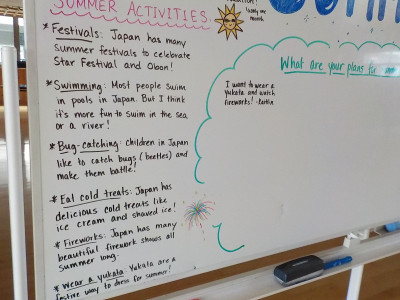 SUMMER ACTIVITIES
* Festivals: Japan has many
Summer festivals to celebrate
Star Festival and Obon!
* Swimming: Most people swim
in pools in Japan. But I think
it's more fun to swim in the sea
or a river!
* Bug-catching: children in Japan
like to catch bugs (beetles) and
make them battle!
* Eat cold treats: Japan has
delicious cold treats like
ice cream and shaved ice!
* Fireworks: Japan has many
beautiful firework shows all
summer long.
* Wear a Yukata: Yukata are a
festive way to dress for summer!
is only one
month
What are your plans for
I want to wear a
yukata and watch
fireworks!